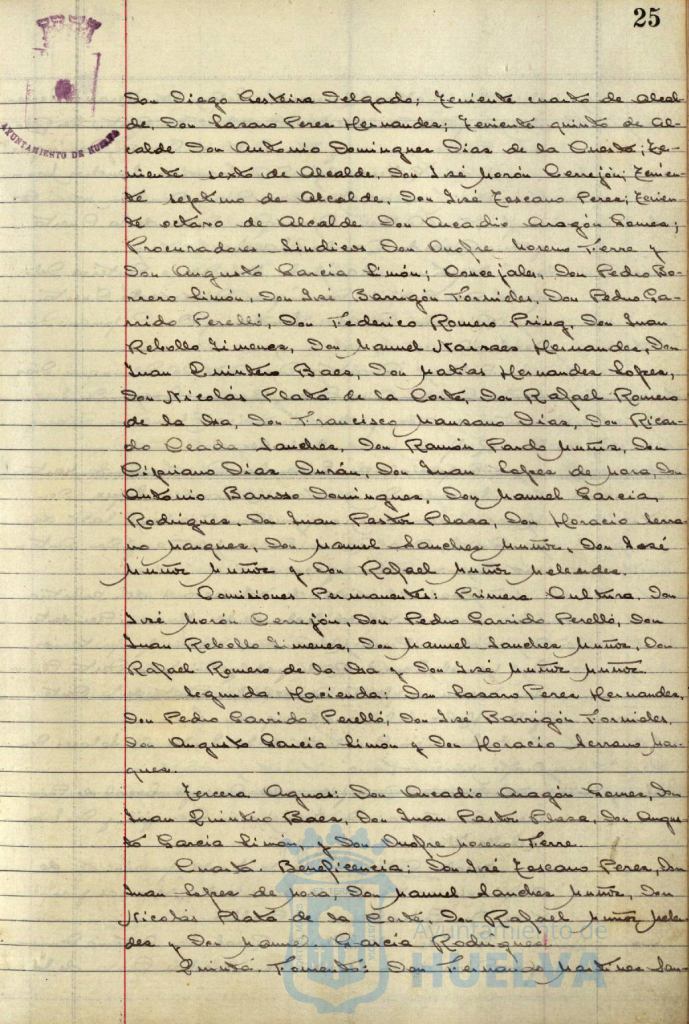 25
AYUNTAMIENTO DE HUELVA
Don Diego Gesteira Delgado; Teniente cuarto de Alcal-
de, Don Lazaro Perez Hernandez; Teniente quinto de Al-
calde Don Antonio Dominguez Dias de la Cuesta; Te-
niente sexto de Alcalde, Don José Morón Cerrejón; Tenien-
te septimo de Alcalde, Don José Toscano Perez; Tenien-
te octavo de Alcalde Don Arcadio Aragón Gomez;
Procuradores Sindicos Don Onofre Moreno Terre y
Don Augusto Garcia Limón; Concejales, Don Pedro Bo-
rrero Limón, Don José Barrigón Fornieles, Don Pedro Ga-
rrido Perelló, Don Federico Romero Don Juan
Rebollo Jimenez, Don Manuel Narvaez Hernandez, Don
Juan Quintero Baez, Don Matias Hernandez Lopez,
Don Nicolás Plata de la Corte, Don Rafael Romero
de la Osa, Don Francisco Manzano Dias, Don Ricar-
do Ceada Sanchez, Don Ramón Pardo Muñiz, Don
Cipriano Dias Durán, Don Juan Lopez de Mora, Don
Antonio Barroso Dominguez, Don Manuel Garcia
Rodriguez, Don Juan Pastor Plaza, Don Horacio Serra-
no Marquez, Don Manuel Sanchez Muñoz, Don José
Muñoz Muñoz y Don Rafael Muñoz Melendez.
Comisiones Permanentes: Primera Cultura. Don
José Morón Cerrejón, Don Pedro Garrido Perelló, Don
Juan Rebollo Jimenez, Don Manuel Sanchez Muñoz, Don
Rafael Romero de la Osa y Don José Muñoz Muñoz
Segunda Hacienda: Don Lazaro Perez Hernandez,
Don Pedro Garrido Perelló, Don José Barrigón Fornieles,
Don Augusto Garcia Limón y Don Horacio Serrano Mar-
quez.
Tercera Aguas: Don Arcadio Aragón Gomez, Don
Juan Quintero Baez, Don Juan Pastor Plaza, Don Augus-
to Garcia Limón, y Don Onofre Moreno Terre.
Cuarta. Beneficencia: Don José Toscano Perez, Don
Juan Lopez de Mora, Don Manuel Sanchez Muñoz, Don
Nicolás Plata de la Corte, Don Rafael Muñoz Melen-
dez y Don Manuel Garcia Rodriguez
Quinta. Fomento: Don Fernando Martinez San-
Ayuntamiento de
HUELVA